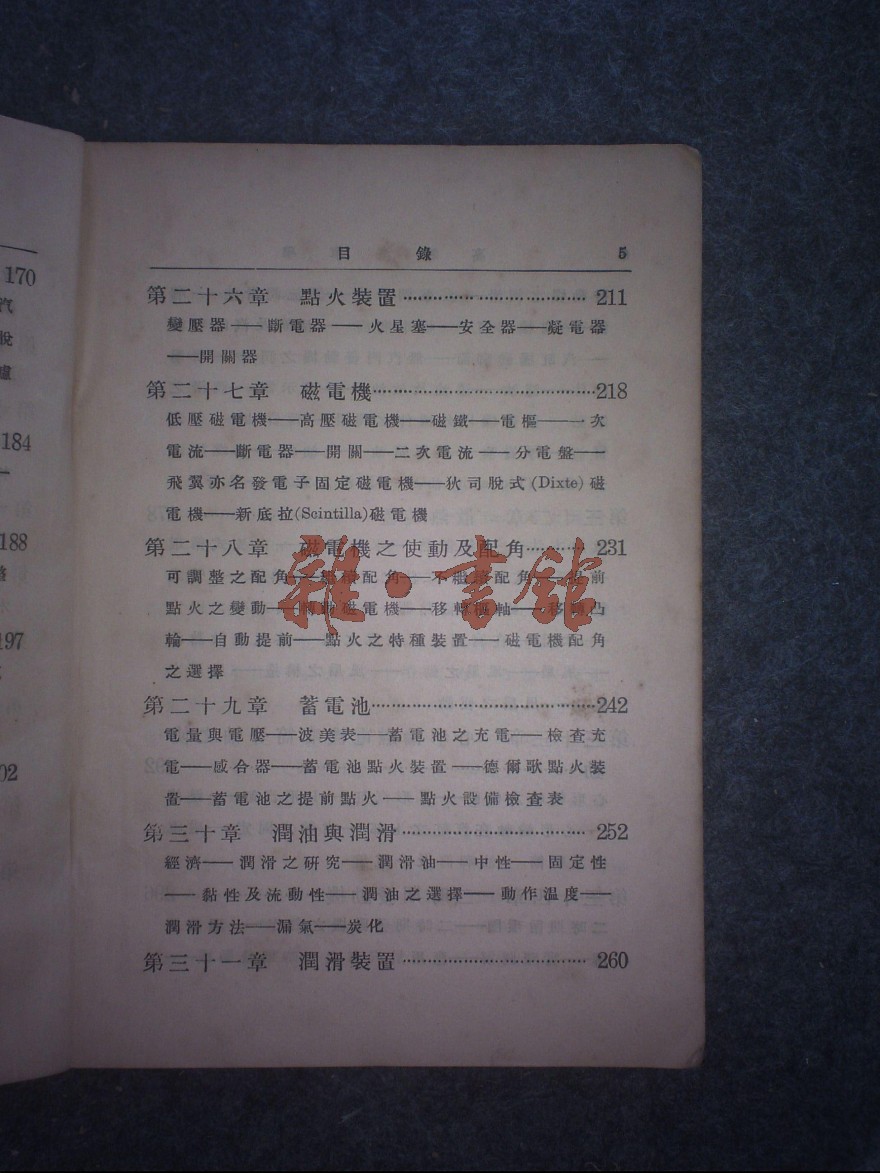 170
汽
184
188
197
02
目錄 5
第二十六章 點火裝置…………………… 211
變壓器——斷電器——火星塞——安全器——凝電器
——開關器
第二十七章 磁電機……………………218
低壓磁電機——高壓磁電機——磁鐵——電樞——一次
電流——斷電器——開關——二次電流——分電盤——
飛翼亦名發電子固定磁電機——狄司脫式(Dixte)磁
電機——新底拉(Scintilla)磁電機
第二十八章 磁電機之使動及配角………… 231
可調整之配角——配角——不配角——提前
點火之變動——磁電機——移轉軸——移凸
輪——自動提前——點火之特種裝置——磁電機配角
之選擇
雜·書館
第二十九章 蓄電池……………………242
電量與電壓——波美表——蓄電池之充電——檢查充
電——感合器——蓄電池點火裝置——德爾歌點火裝
置——蓄電池之提前點火——點火設備檢查表
第三十章 潤油與潤滑…………………… 252
經濟——潤滑之研究——潤滑油——中性——固定性
——黏性及流動性——潤油之選擇——動作溫度——
潤滑方法——漏氣——炭化
第三十一章 潤滑裝置…………………… 260